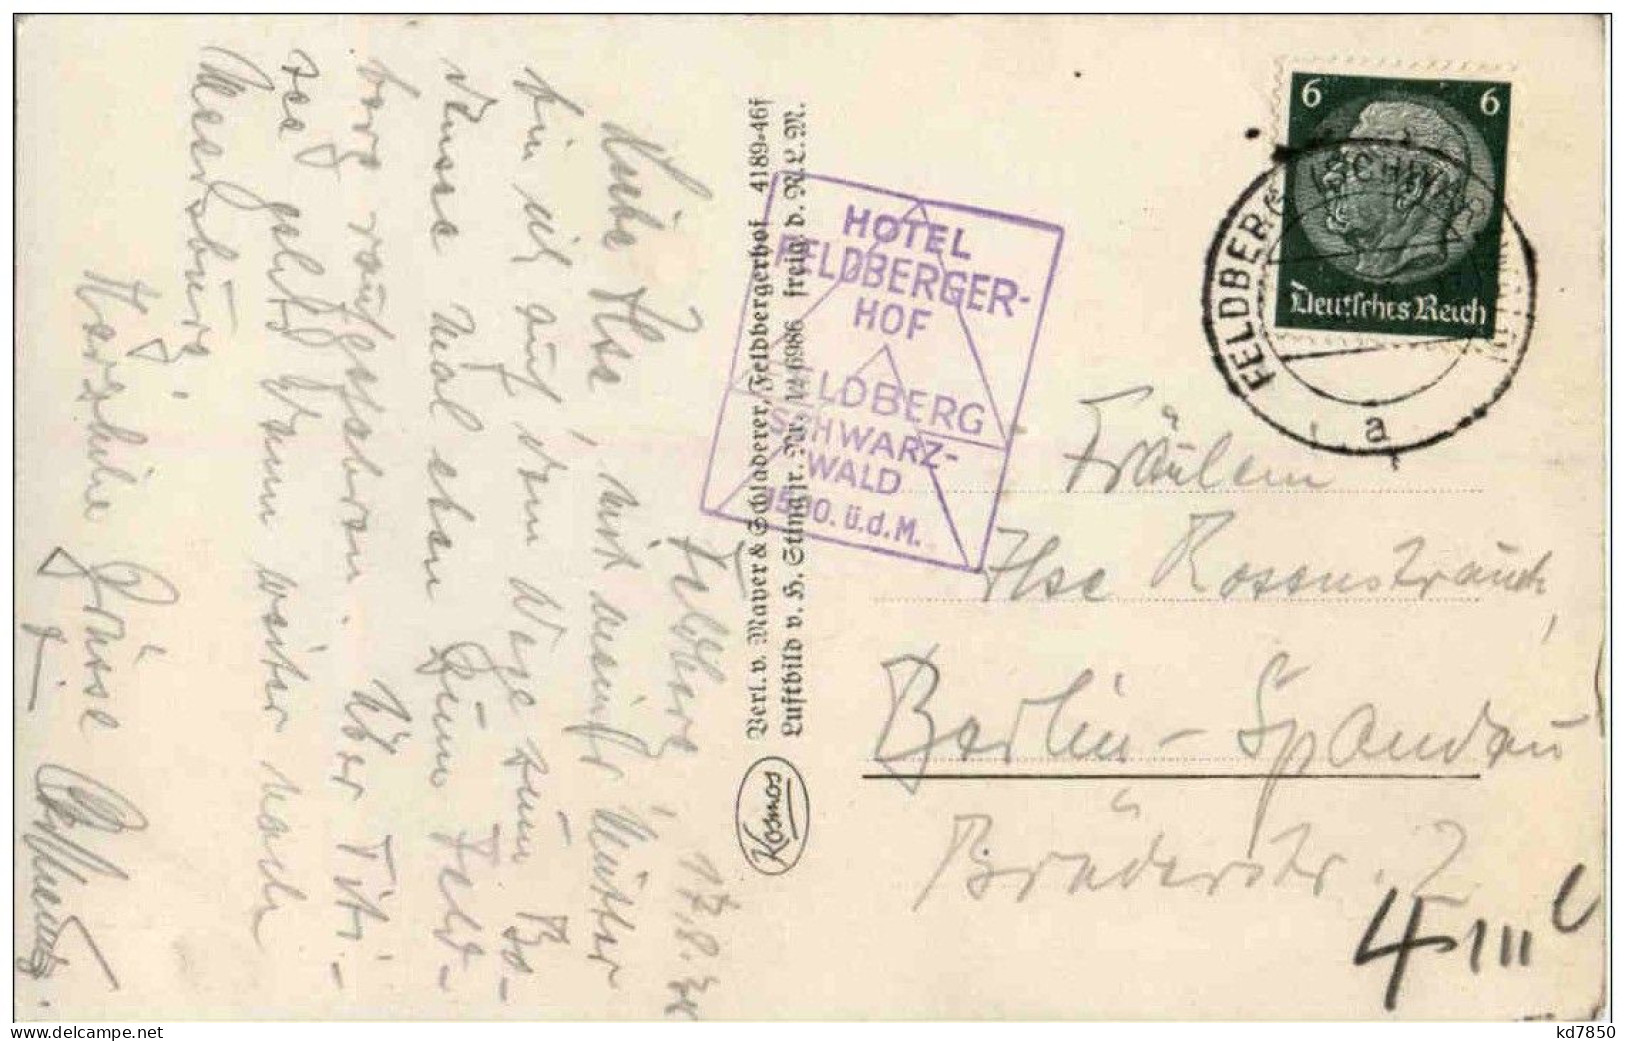 Feldberg, 17.8.
Liebe Ilse, mit meiner Mutter
bin ich auf dem Wege zum Bo-
densee mal eben zum Feld-
berg raufgefahren. Über Titi-
see geht dann weiter nach
Meersburg.
Herzliche Grüsse
Verl. v. Mayer & Schladerer, Feldbergerhof 4189-46f
Luftbild v. H. Strähle jr. Nr. 12 6986 freig. d. R.L.M.
Kosmos
HOTEL
FELDBERGER-
HOF
FELDBERG
SCHWARZ-
WALD
1500. ü.d.M.
6 6
Deutsches Reich
FELDBERG (SCHWARZW)
a
Fräulein
Ilse Rosenstrauch,
Berlin-Spandau
Brüderstr. 2
4 III
kd7850